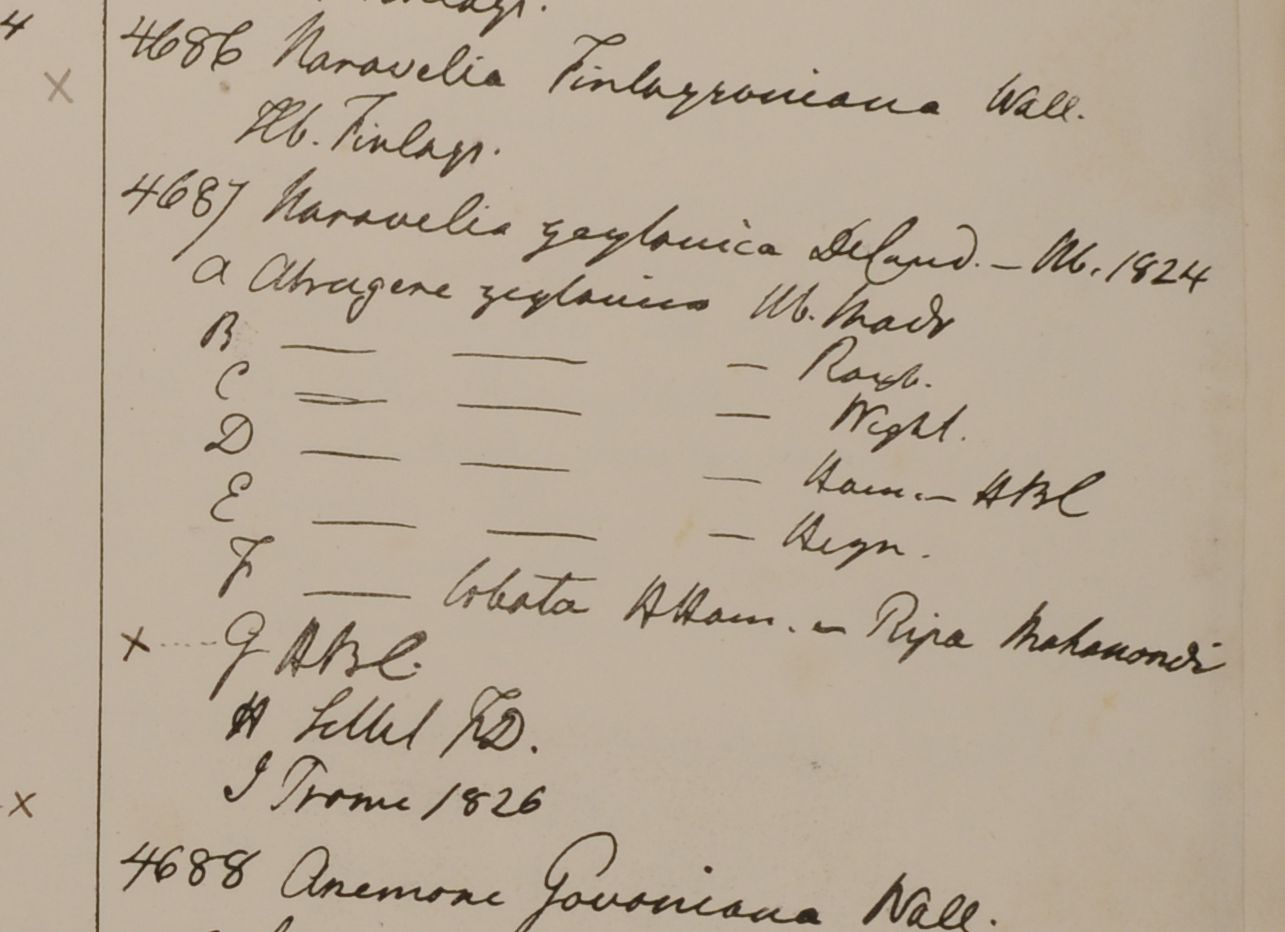 4
4686 Naravelia Finlaysoniana Wall.
Hb. Finlays.
4687 Naravelia zeylanica DeCand. – Hb. 1824
a Atragene zeylanica Hb. Madr
B — — — Roxb.
C — — — Wight.
D — — — Ham. – HBC
E — — — Heyn.
F — lobata HHam. – Ripa Mahanondi
x G HBC.
H Sillet FD.
I Prome 1826
4688 Anemone Govaniana Wall.